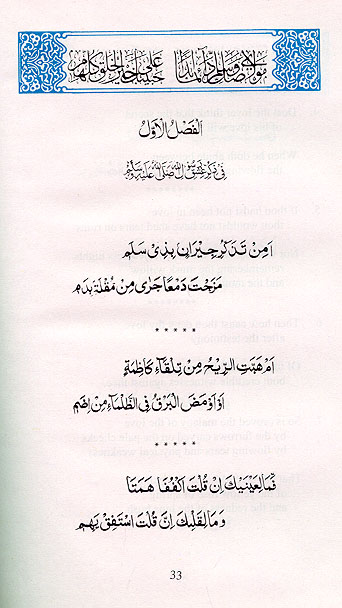 مَوْلَايَ صَلِّ وَسَلِّمْ دَائِمًا أَبَدًا عَلٰى حَبِيْبِكَ خَيْرِ الْخَلْقِ كُلِّهِمِ
اَلْفَصْلُ الْاَوَّلُ
فِيْ ذِكْرِ عِشْقِ رَسُوْلِ اللهِ صَلَّى اللهُ عَلَيْهِ وَسَلَّمَ
اَمِنْ تَذَكُّرِ جِيْرَانٍ بِذِىْ سَلَمٍ
مَزَجْتَ دَمْعًا جَرٰى مِنْ مُقْلَةٍ بِدَمٍ
* * * * *
اَمْ هَبَّتِ الرِّيْحُ مِنْ تِلْقَاءِ كَاظِمَةٍ
اَوْ اَوْمَضَ الْبَرْقُ فِى الظَّلْمَاءِ مِنْ اِضَمٍ
* * * * *
فَمَا لِعَيْنَيْكَ اِنْ قُلْتَ اكْفُفَا هَمَتَا
وَمَا لِقَلْبِكَ اِنْ قُلْتَ اسْتَفِقْ يَهِمِ
33